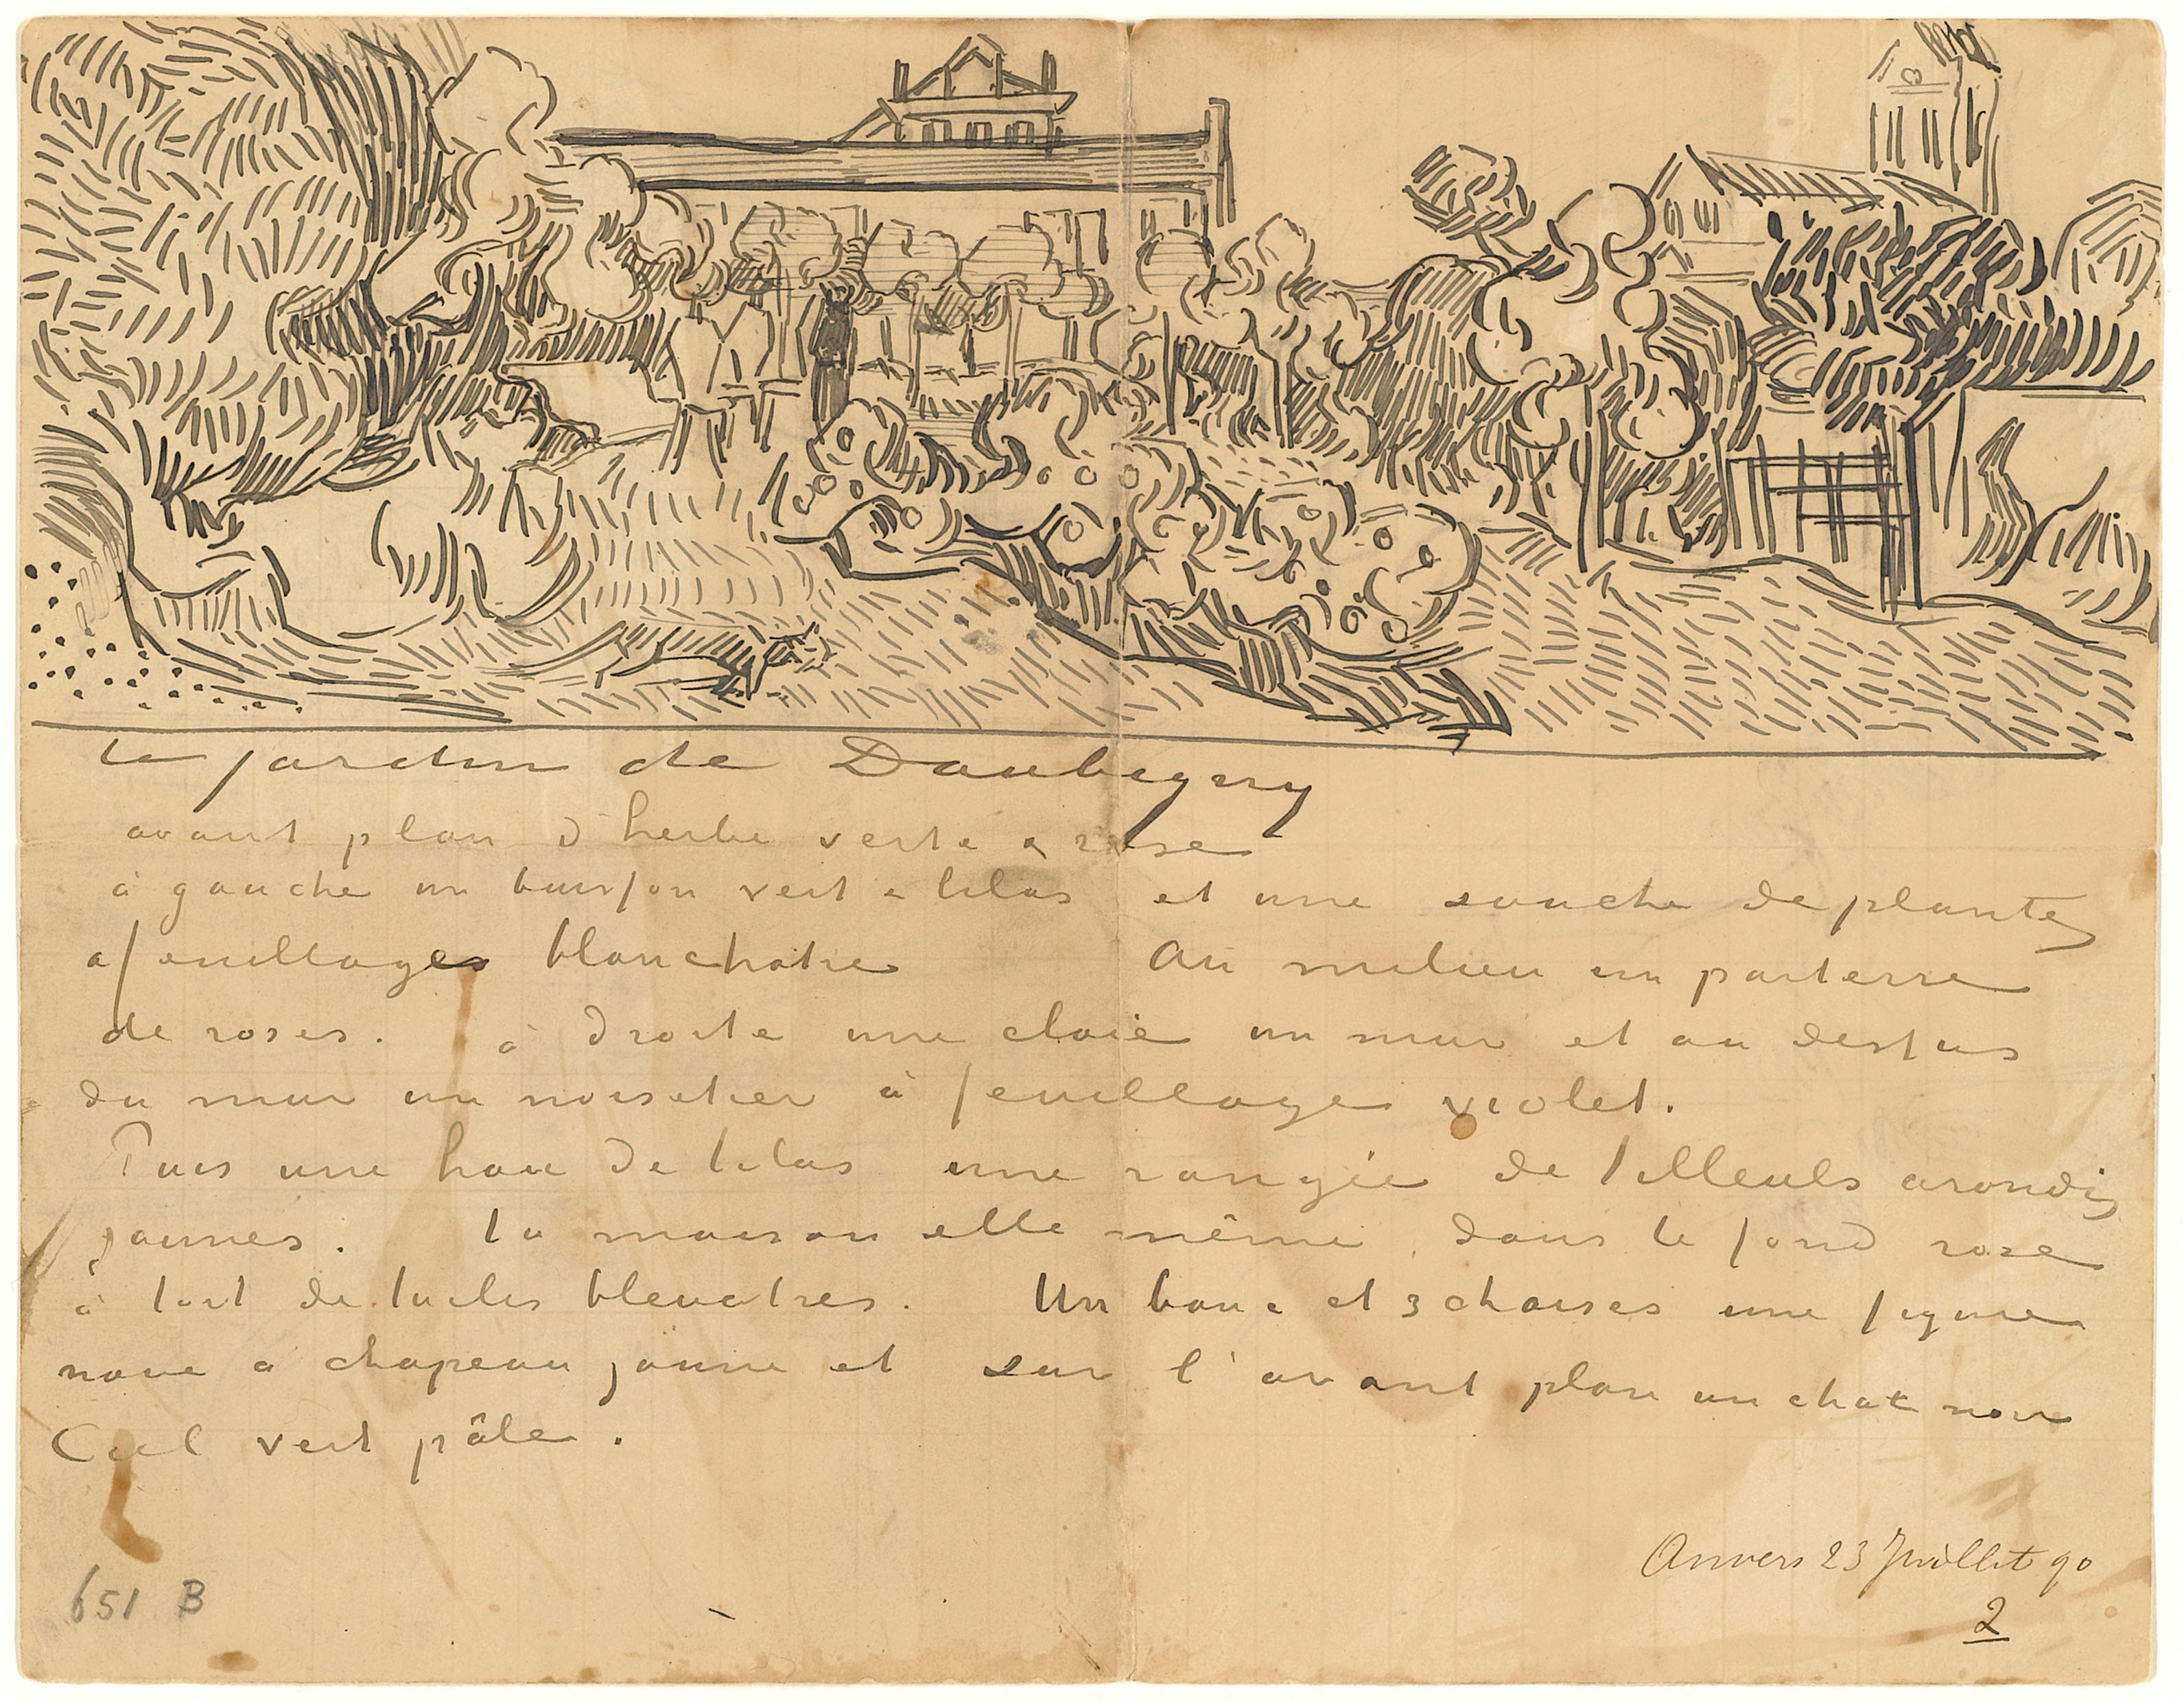 le jardin de Daubigny
avant plan d'herbe verte & rose
à gauche un buisson vert & lilas et une souche de plantes
a feuillages blanchatres Au milieu un parterre
de roses. à droite une claie un mur et au dessus
du mur un noisetier à feuillage violet.
Puis une haie de lilas une rangée de tilleuls arondis
jaunes. La maison elle même dans le fond rose
à toit de tuiles bleuatres. Un banc et 3 chaises une figure
noire a chapeau jaune et sur l'avant plan un chat noir
Ciel vert pâle.
Anvers 23 Juillet 90
2
651 B